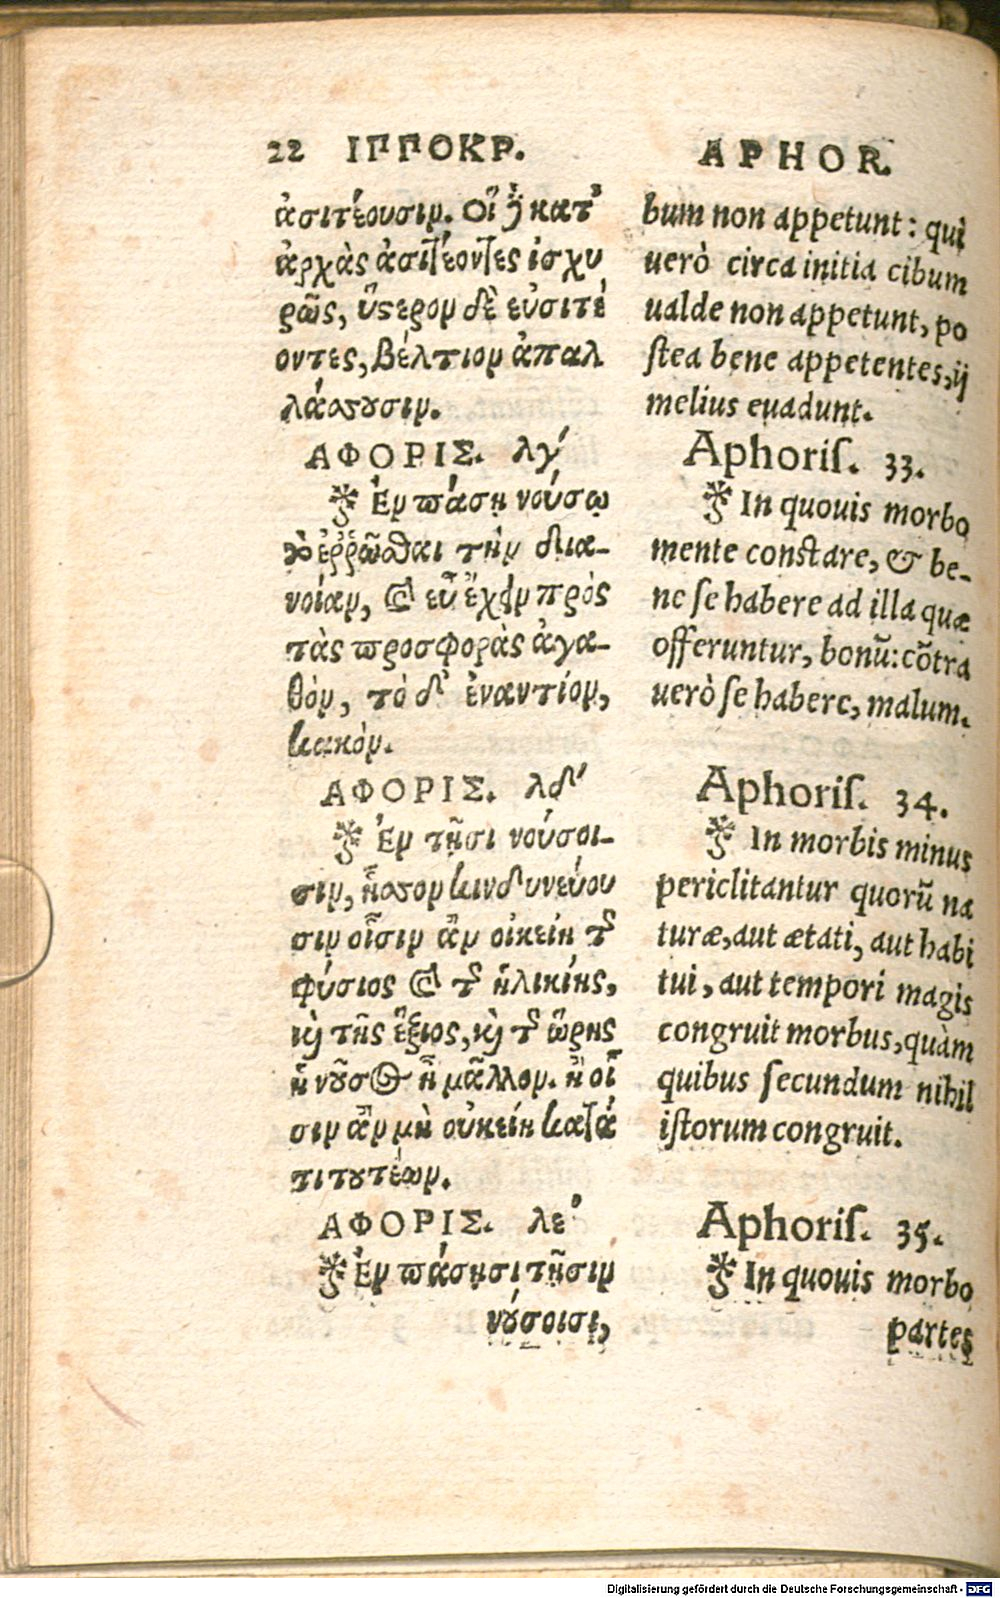 22 ΙΠΠΟΚΡ.
ἀσιτέουσιν. Οἵ δὲ κατ'
ἀρχὰς ἀσιτέοντες ἰσχυ
ρῶς, ὕστερον δὲ εὐσιτέ
οντες, βέλτιον ἀπαλ
λάσσουσιν.
ΑΦΟΡΙΣ. λγ'
Ἐν πάσῃ νούσῳ
τὸ ἐῤῥῶσθαι τὴν δια-
νοίαν, καὶ εὖ ἔχειν πρὸς
τὰς προσφορὰς ἀγα-
θόν, τὸ δ' ἐναντίον,
κακόν.
ΑΦΟΡΙΣ. λδ'
Ἐν τῇσι νούσοι-
σιν, ἧσσον κινδυνεύου
σιν οἷσιν ἂν οἰκείη τῆς
φύσιος καὶ τῆς ἡλικίης,
καὶ τῆς ἕξιος, καὶ τῆς ὥρης
ἡ νοῦσος ᾖ μᾶλλον. ἢ οἷ
σιν ἂν μὴ οὐκείη κατά
τι τουτέων.
ΑΦΟΡΙΣ. λε'
Ἐν πάσῃσι τῇσιν
νούσοισι,
APHOR.
bum non appetunt: qui
uerò circa initia cibum
ualde non appetunt, po
stea bene appetentes, ij
melius euadunt.
Aphoris. 33.
In quouis morbo
mente constare, & be-
ne se habere ad illa quæ
offeruntur, bonū: cōtra
uerò se habere, malum.
Aphoris. 34.
In morbis minus
periclitantur quorū na
turæ, aut ætati, aut habi
tui, aut tempori magis
congruit morbus, quàm
quibus secundum nihil
istorum congruit.
Aphoris. 35.
In quouis morbo
partes
Digitalisierung gefördert durch die Deutsche Forschungsgemeinschaft - DFG